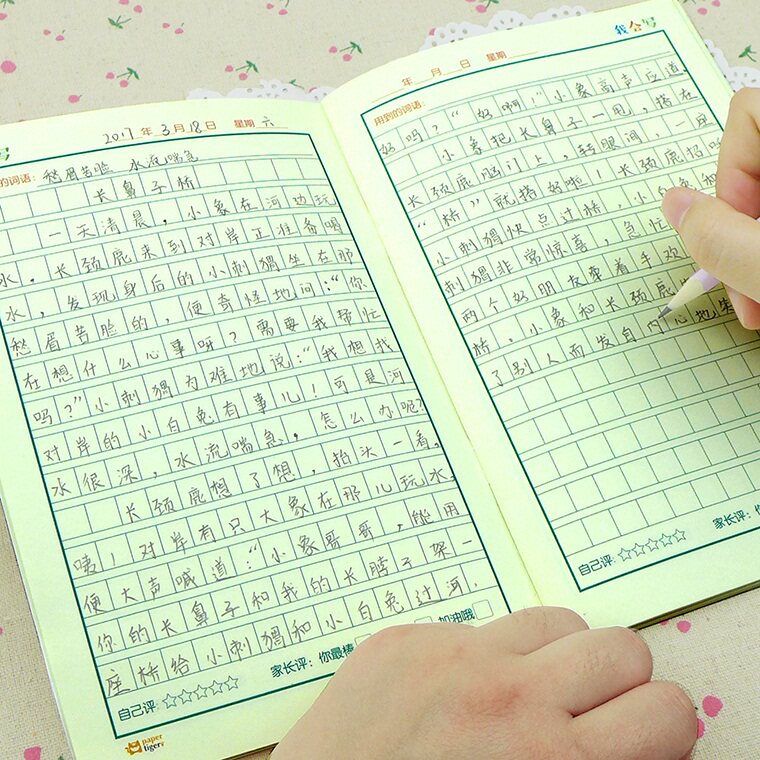 2017年3月18日 星期六
的词语：愁眉苦脸 水流喘急
长鼻子桥
一天清晨，小象在河边玩
水，长颈鹿来到对岸正准备喝
水，发现身后的小刺猬坐在那
愁眉苦脸的，便奇怪地问：“你
在想什么心事呀？需要我帮忙
吗？”小刺猬为难地说：“我想找
对岸的小白兔有事儿！可是河
水很深，水流喘急，怎么办呢？
长颈鹿想了想，抬头一看，
咦！对岸有只大象在那儿玩水，
便大声喊道：“小象哥哥，能用
你的长鼻子和我的长脖子架一
座桥给小刺猬和小白兔过河，
自己评：☆☆☆☆☆
家长评：你最棒 加油哦
paper tiger
我会写
年 月 日 星期
用到的词语：
好吗？”“好啊！”小象高声应道
小象把长鼻子一甩，搭在
长颈鹿脑门上，转眼间，一座
“桥”就搭好啦！长颈鹿招呼
小刺猬快点过桥，小白兔和
刺猬非常惊喜，急忙
两个好朋友牵着手欢
桥，小象和长颈鹿
了别人而发自内心地
自己评：☆☆☆☆☆
家长评：你